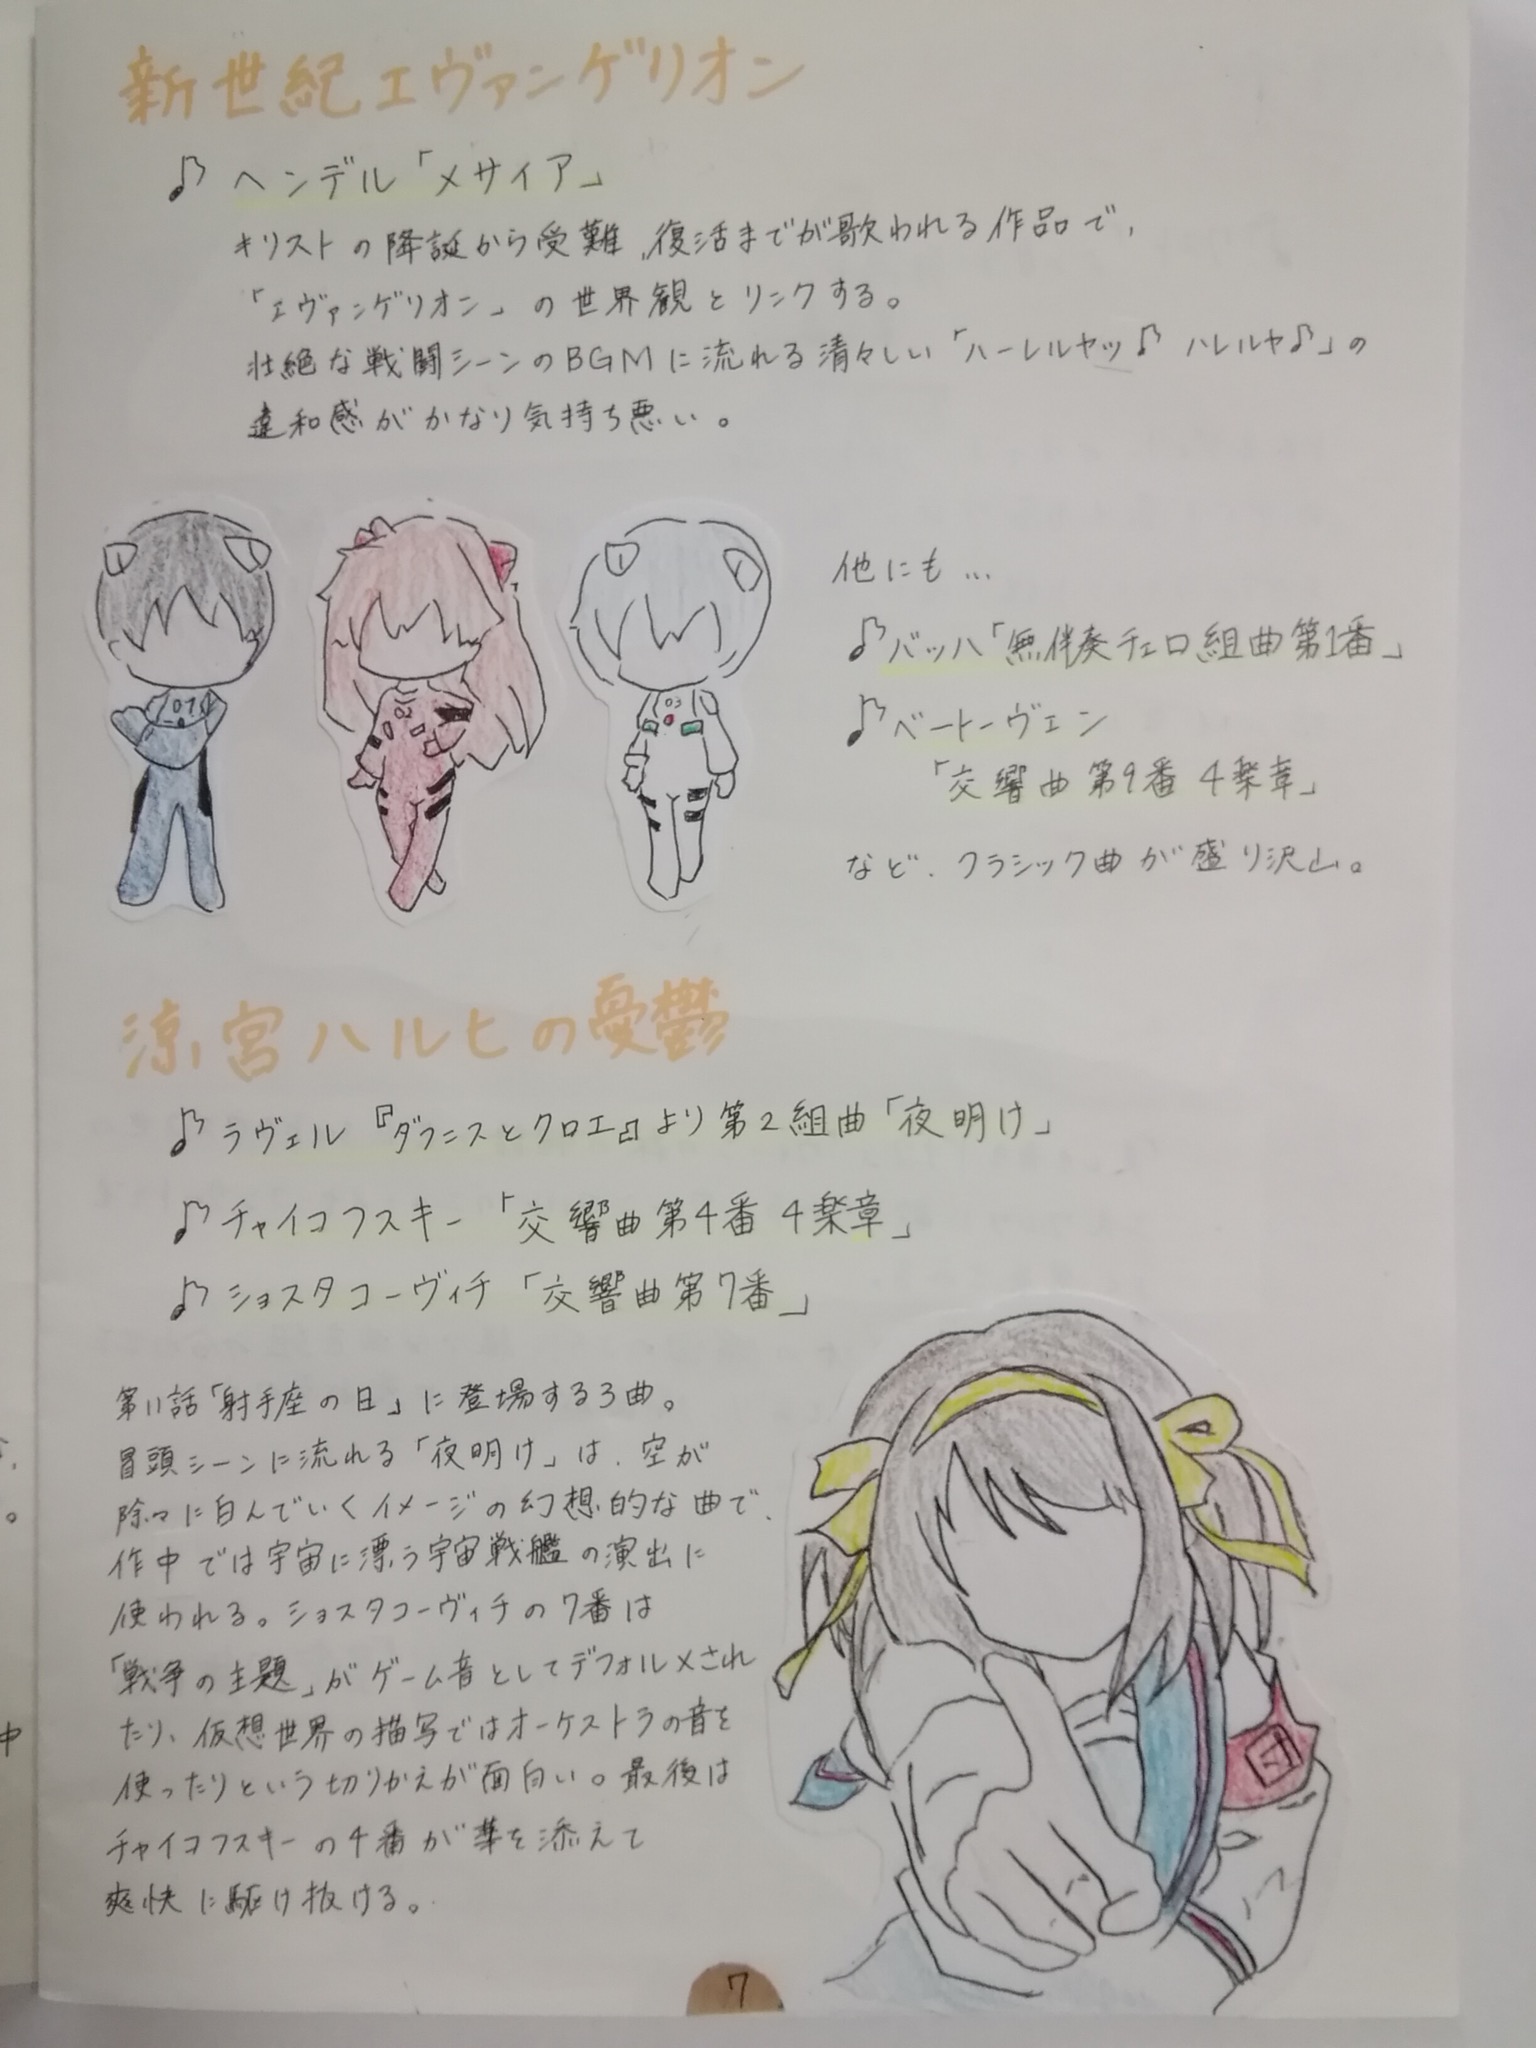 新世紀エヴァンゲリオン
♪ ヘンデル「メサイア」
キリストの降誕から受難、復活までが歌われる作品で、
「エヴァンゲリオン」の世界観とリンクする。
壮絶な戦闘シーンのBGMに流れる清々しい「ハーレルヤッ♪ ハレルヤ♪」の
違和感がかなり気持ち悪い。
他にも…
♪バッハ「無伴奏チェロ組曲第1番」
♪ベートーヴェン
「交響曲第9番 4楽章」
など、クラシック曲が盛り沢山。
涼宮ハルヒの憂鬱
♪ ラヴェル『ダフニスとクロエ』より第2組曲「夜明け」
♪ チャイコフスキー「交響曲第4番 4楽章」
♪ ショスタコーヴィチ「交響曲第7番」
第11話「射手座の日」に登場する3曲。
冒頭シーンに流れる「夜明け」は、空が
除々に白んでいくイメージの幻想的な曲で、
作中では宇宙に漂う宇宙戦艦の演出に
使われる。ショスタコーヴィチの7番は
「戦争の主題」がゲーム音としてデフォルメされ
たり、仮想世界の描写ではオーケストラの音を
使ったりという切りかえが面白い。最後は
チャイコフスキーの4番が華を添えて
爽快に駆け抜ける。
団
7
中